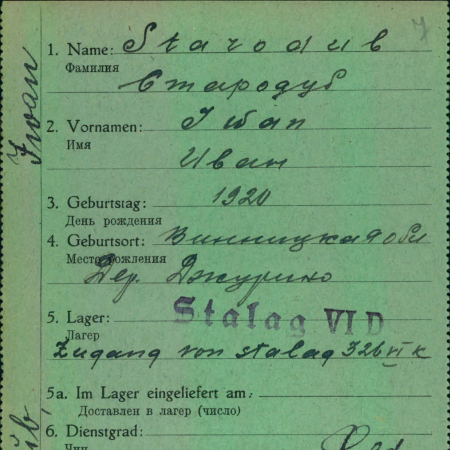 7
1. Name: Starodub
Фамилия
Стародуб
2. Vornamen: Iwan
Имя
Иван
3. Geburtstag: 1920
День рождения
4. Geburtsort: Винницкая обл
Место рождения
Дер. Джурино
5. Lager: Stalag VI D
Лагер
Zugang von stalag 326 VI K
5a. Im Lager eingeliefert am:
Доставлен в лагер (число)
6. Dienstgrad:
Чин
Iwan